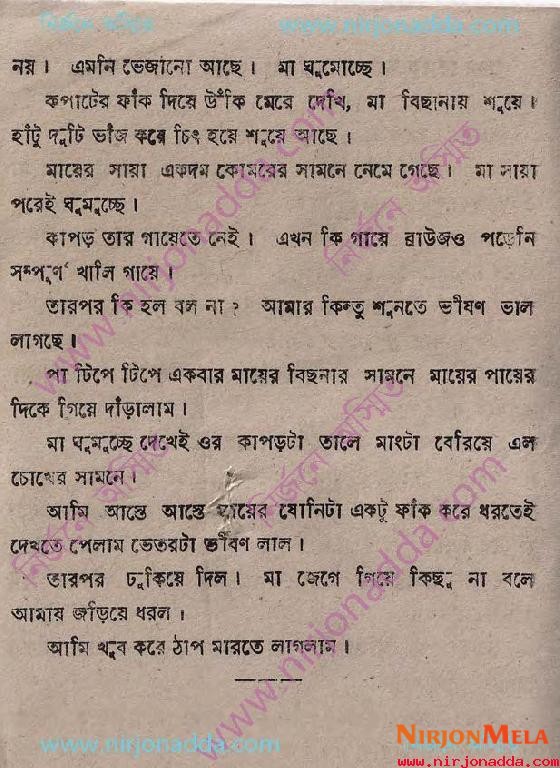 www.nirjonadda.com
নয়। এমনি ভেজানো আছে। মা ঘুমোচ্ছে।
কপাটের ফাঁক দিয়ে উঁকি মেরে দেখি, মা বিছানায় শুয়ে।
হাঁটু দুটি ভাঁজ করে চিৎ হয়ে শুয়ে আছে।
মায়ের সায়া একদম কোমরের সামনে নেমে গেছে। মা সায়া
পরেই ঘুমুচ্ছে।
কাপড় তার গায়েতে নেই। এখন কি গায়ে ব্লাউজও পড়েনি
সম্পূর্ণ খালি গায়ে।
তারপর কি হল বল না? আমার কিন্তু শুনতে ভীষণ ভাল
লাগছে।
পা টিপে টিপে একবার মায়ের বিছনার সামনে মায়ের পায়ের
দিকে গিয়ে দাঁড়ালাম।
মা ঘুমুচ্ছে দেখেই ওর কাপড়টা তালে মাংটা বেরিয়ে এল
চোখের সামনে।
আমি আস্তে আস্তে মায়ের যোনিটা একটু ফাঁক করে ধরতেই
দেখতে পেলাম ভেতরটা ভীষণ লাল।
তারপর ঢুকিয়ে দিল। মা জেগে গিয়ে কিছু না বলে
আমায় জড়িয়ে ধরল।
আমি খুব করে ঠাপ মারতে লাগলাম।
www.nirjonadda.com
NIRJONMELA
www.nirjonadda.com